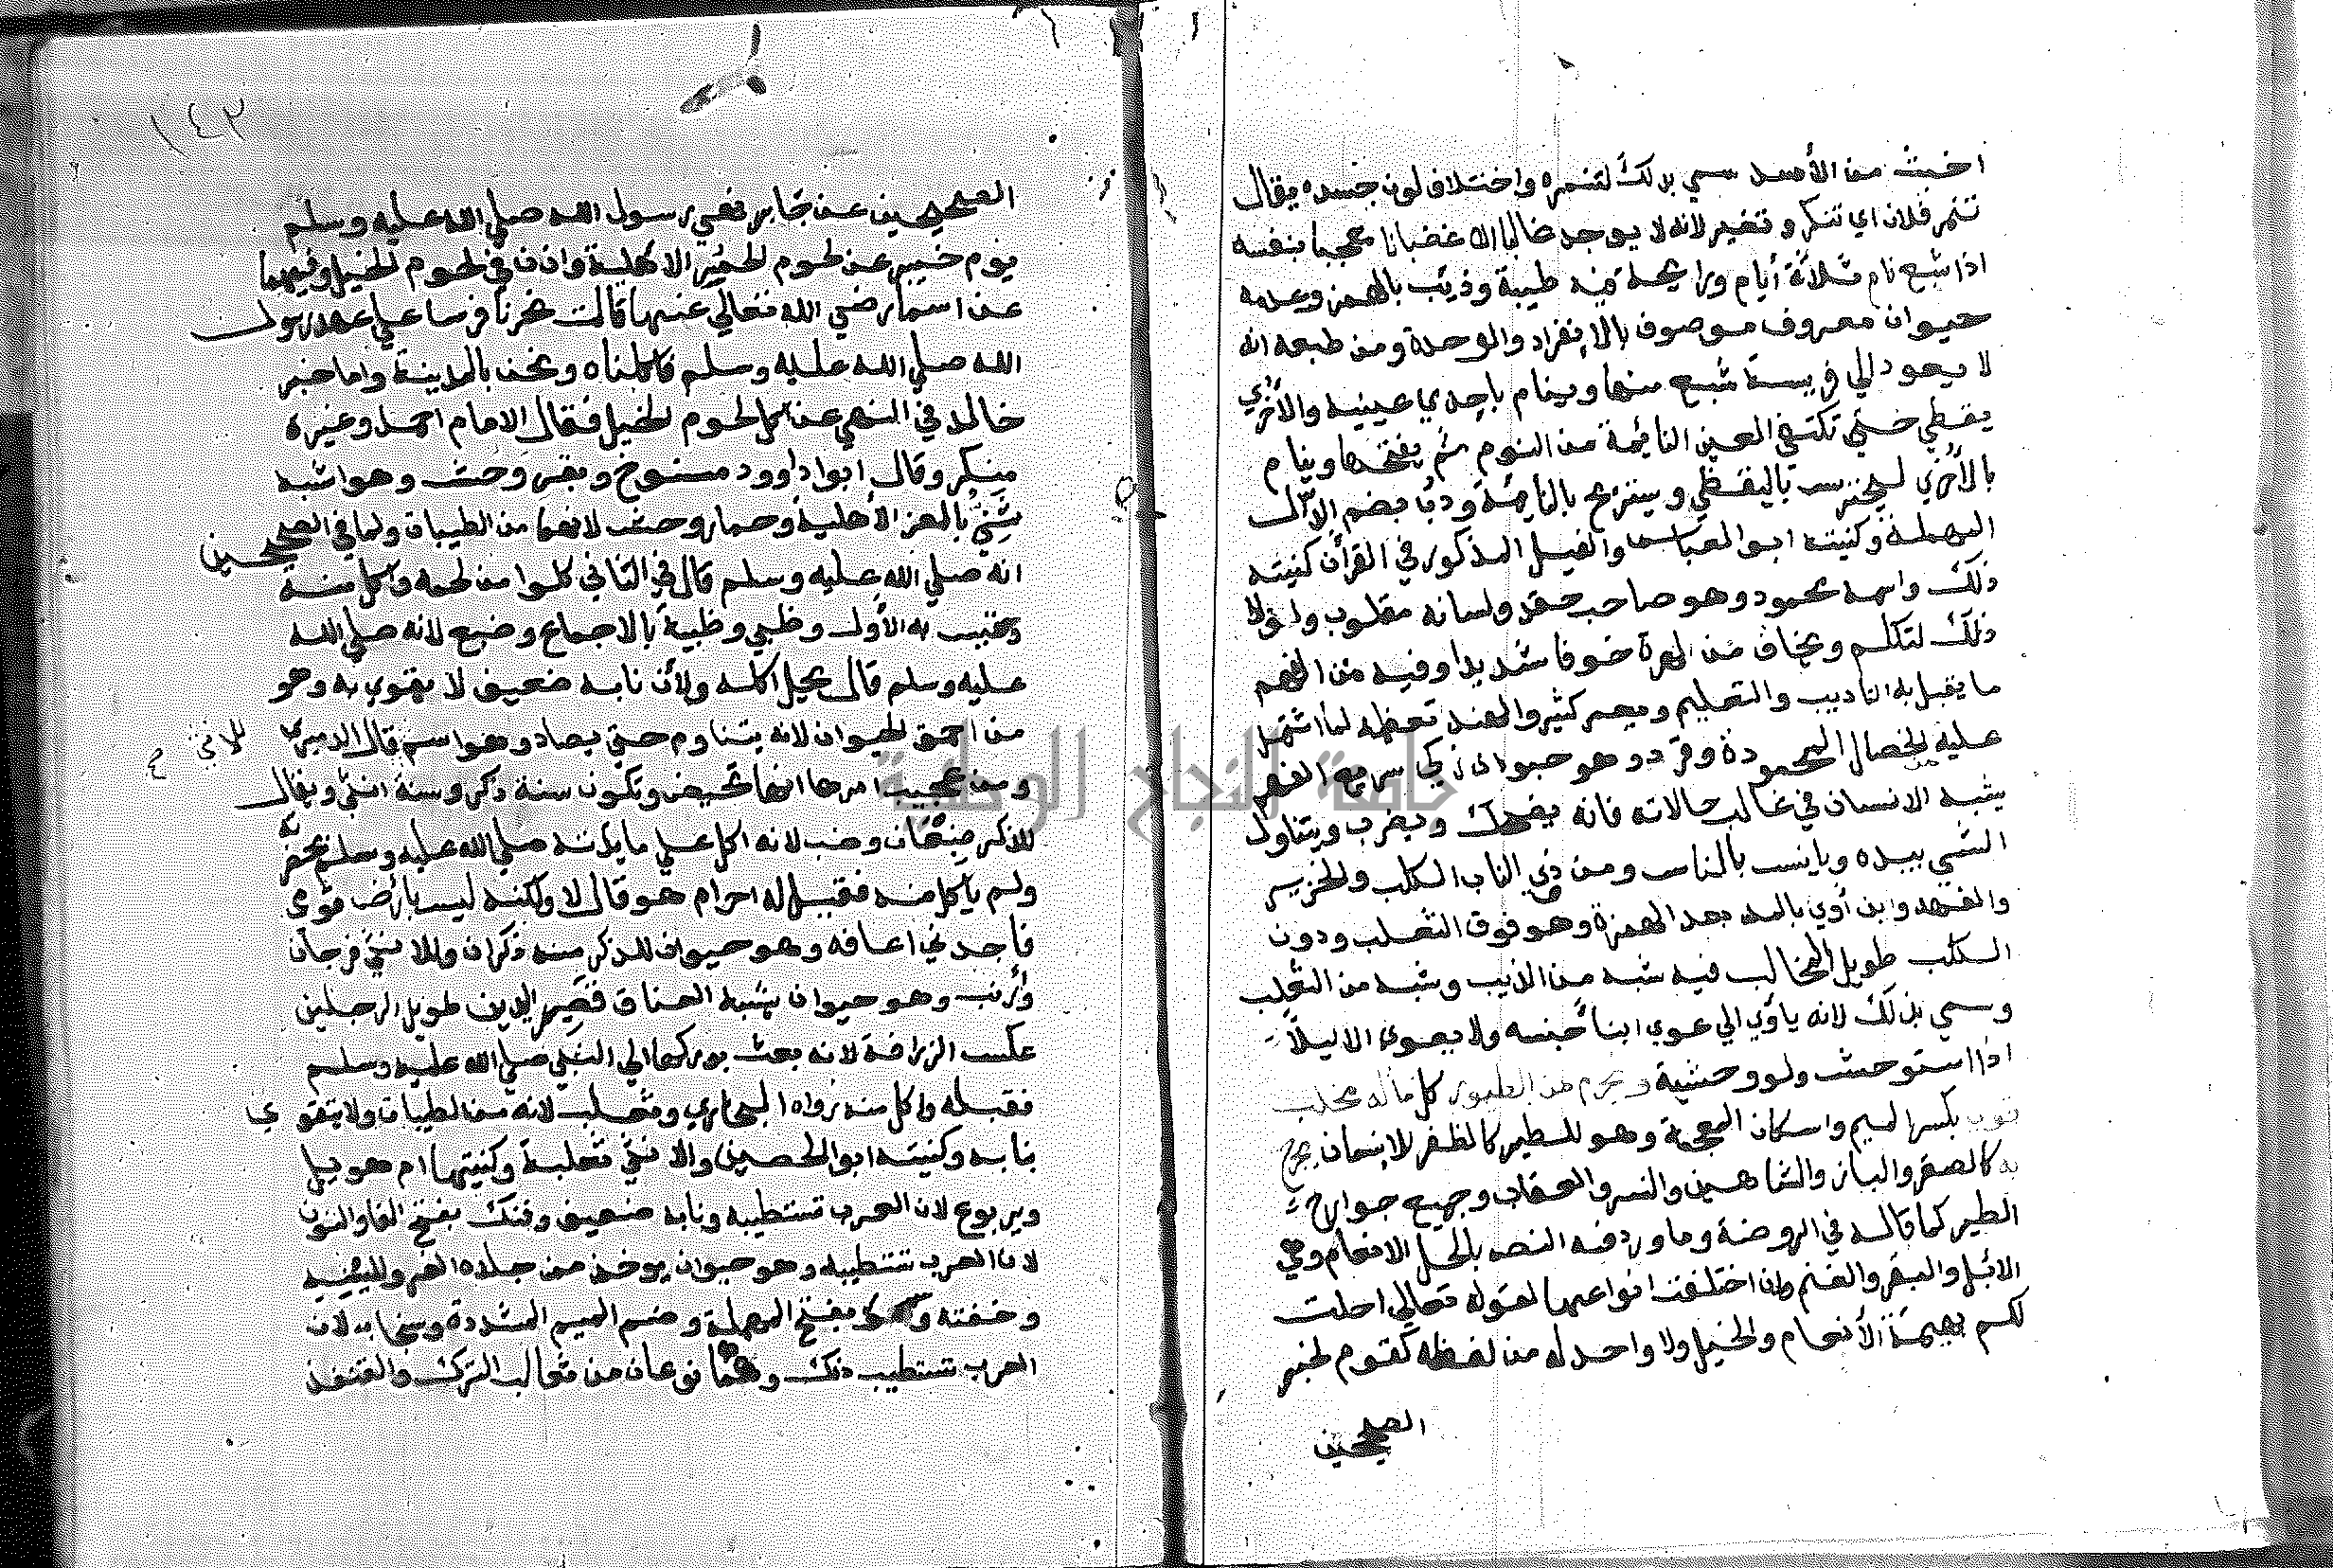 اخبث من الأسد سمي بذلك لتنمره واختلاف لون جسده يقال
تنمر فلان اي تنكر وتغير لانه لا يوجد غالبا الا غضبانا معجبا بنفسه
اذا شبع نام ثلاثة أيام ورايحة فيه طيبة وذيب بالهمز وعدمه
حيوان معروف موصوف بالانفراد والوحدة ومن طبعه انه
لا يعود الي فريسة شبع منها وينام باحدي عينيه والأخري
يقظي حتي تكتفي العين النائمة من النوم ثم يفتحها وينام
بالأخري ليحترس باليقظي ويستريح بالنائمة ودب بضم الدال
المهملة وكنيته ابو العباس والفيل المذكور في القرآن كنيته
ذلك واسمه محمود وهو صاحب حقد ولسانه مقلوب ولولا
ذلك لتكلم ويخاف من الهرة خوفا شديدا وفيه من الفهم
ما يقبل به التاديب والتعليم ويعمر كثيرا والهند تعظمه لما اشتمل
عليه الخصال المحمودة وقرد وهو حيوان ذكي سريع الفهم
يشبه الانسان في غالب حالاته فانه يضحك ويضرب ويتناول
الشي بيده ويانس بالناس ومن ذي الناب الكلب والخنزير
والفهد وابن أوي بالمد بعد الهمزة وهو فوق الثعلب ودون
الكلب طويل المخالب فيه شبه من الذيب وشبه من الثعلب
وسمي بذلك لانه ياوي الي عوي ابنا جنسه ولا يعوي الا ليلا
اذا استوحش ولو وحشية ويحرم من الطيور كل ما له مخلب
قوي بكسر الميم واسكان المعجمة وهو للطير كالظفر للانسان يجرح
به كالصقر والباز والشاهين والنسر والعقاب وجميع جوارح
الطير كما قاله في الروضة وما ورد فيه النص بالحل الانعام وهي
الابل والبقر والغنم وان اختلفت انواعها لقوله تعالي احلت
لكم بهيمة الأنعام والخيل ولا واحد له من لفظه كقوم لخبر
الصحيحين
١٤٣
الصحيحين عن جابر نهي رسول الله صلي الله عليه وسلم
يوم خيبر عن لحوم الحمر الاهلية واذن في لحوم الخيل وفيهما
عن اسماء رضي الله تعالي عنها قالت نحرنا فرسا علي عهد رسول
الله صلي الله عليه وسلم فاكلناه ونحن بالمدينة واما خبر
خالد في النهي عن اكل لحوم الخيل فقال الامام احمد وغيره
منكر وقال ابوا داوود منسوخ وبقر وحش وهو اشبه
شئ بالمعز الأهلية وحمار وحش لانهما من الطيبات ولما في الصحيحين
انه صلي الله عليه وسلم قال في الثاني كلوا من لحمه وأكل منه
وقيس به الأول وظبي وظبية بالاجماع وضبع لانه صلي الله
عليه وسلم قال يحل اكله ولأن نابه ضعيف لا يتقوي به وهو
من احمق الحيوان لانه يتناوم حتي يصاد وهو اسم قال الدميري
للانثي
ومن عجيب امرها انها تحيض وتكون سنة ذكر وسنة انثي ويقال
للذكر ضبعان وضب لانه اكل علي مايدته صلي الله عليه وسلم بحضرته
ولم ياكل منه فقيل له احرام هو قال لا ولكنه ليس بارض قومي
فأجدني اعافه وهو حيوان للذكر منه ذكران وللانثي فرجان
وأرنب وهو حيوان يشبه العناق قصير اليدين طويل الرجلين
عكس الزرافة لانه بعث بوركها الي النبي صلي الله عليه وسلم
فقبله واكل منه رواه البخاري وثعلب لانه من الطيبات ولا يتقوي
بنابه وكنيته ابو الحصين والانثي ثعلبة وكنيتها ام هويل
ويربوع لان العرب تستطيبه ونابه ضعيف وفنك بفتح الفا والنون
لان العرب تستطيبه وهو حيوان يوخذ من جلده الفرو للينه
وخفته وسمور بفتح المهملة وضم الميم المشددة وسنجاب لان
العرب تستطيب ذلك وهما نوعان من ثعالب الترك والقنفذ
جامعة النجاح الوطنية